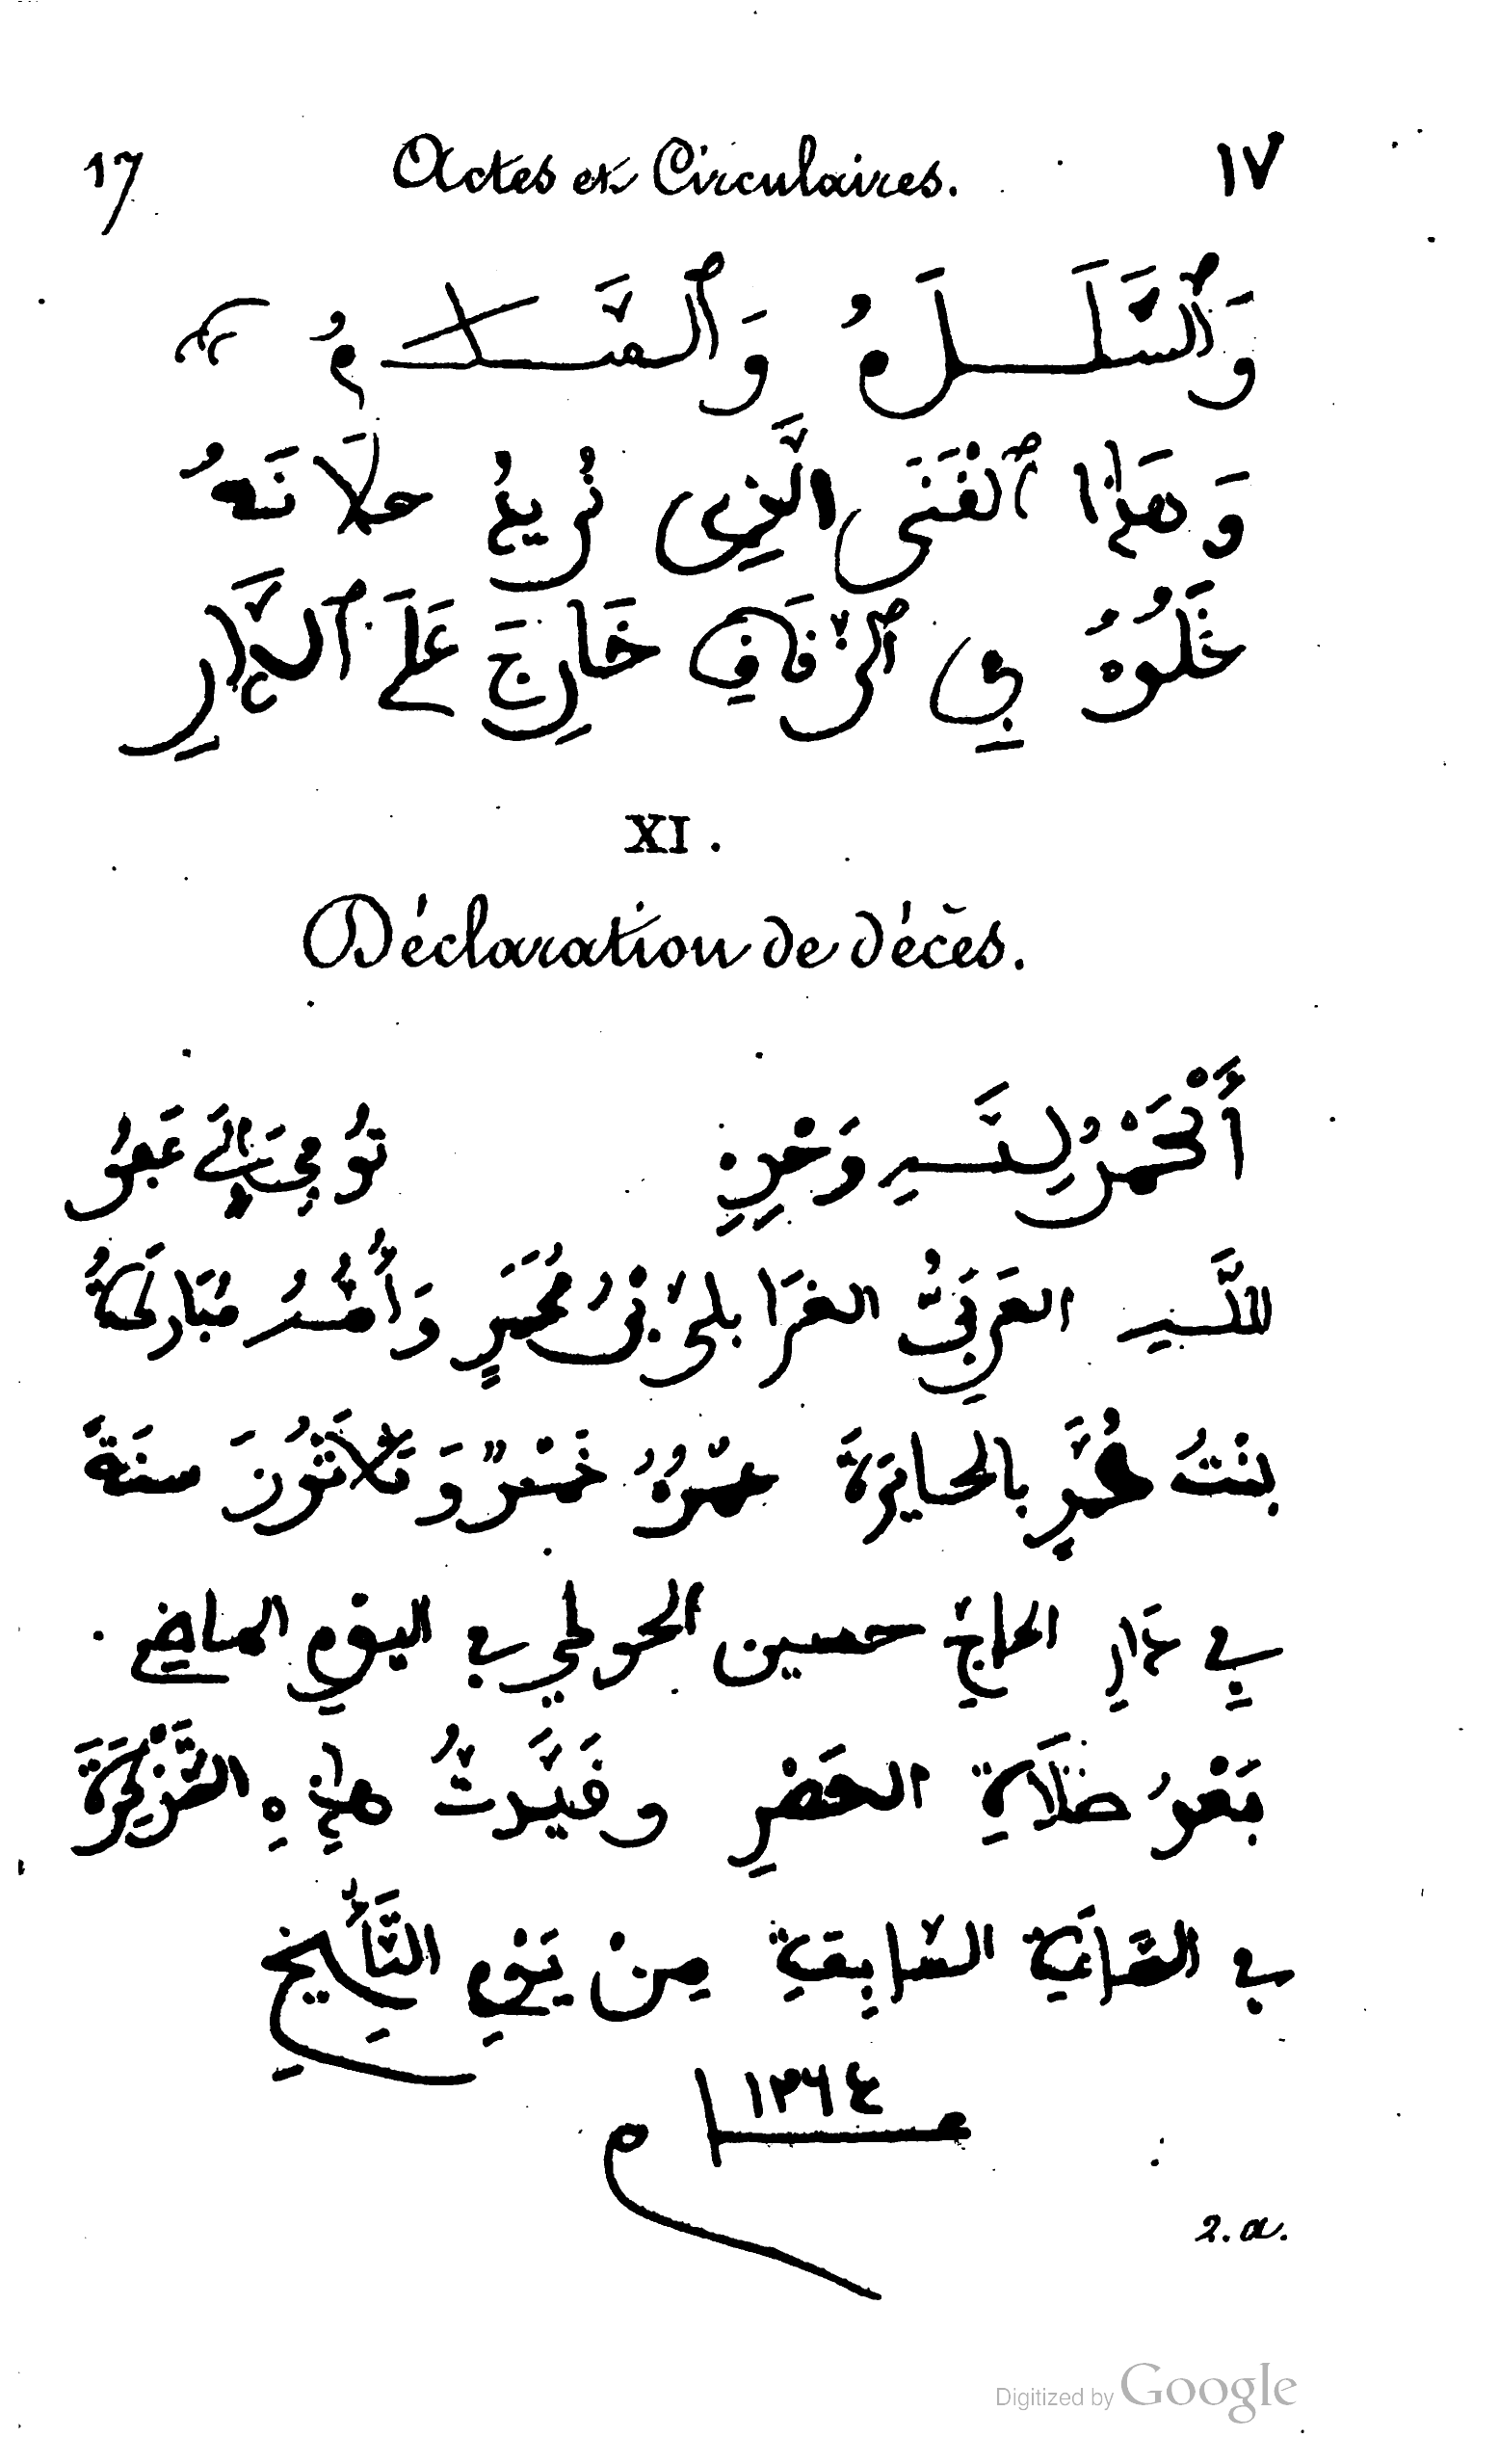 17 Actes et Circulaires. ١٧
وَٱلسَّلَامُ وَٱلسَّلَامُ
وَهَٰذَا ٱلْفَتَى الَّذِى تُرِيدُ حَلَانَهُ
خَلُوهُ فِي ٱلزُّقَاقِ خَارِجَ عَلَى ٱلدَّارِ
XI.
Déclaration de décès.
أَلْحَمْدُ لِلَّهِ وَحْدِهِ تُوُفِيَ إِلَى عَفْوِ
اللَّهِ العَرَبِيُّ الغَرَابلِىُّ بْنُ مُحَمَّدٍ وَأُمُّهُ مُبَارَكَةُ
بِنْتُ مُحَمَّدٍ بالحايرَةَ عُمْرُهُ خَمْسٌ وَثَلَاثُونَ سنَةً
فِي دَارِ الحاجِّ حسين في اليَوْمِ الماضِي
بَعْدَ صَلَاةِ العَصْرِ وقَيَّدتُ هٰذِهِ التَّذْكِرَةَ
في السَّاعَةِ السَّابِعَةِ مِنْ يَوْمِ التَّأْرِيخِ
١٣٦٤
2.a.
Digitized by Google